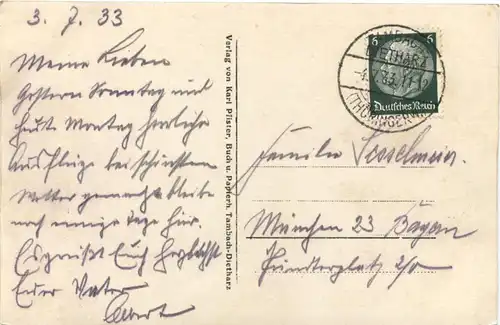 3. 7. 33
Meine Lieben
Gestern Sonntag und
heute Montag herrliche
Ausflüge bei schönstem
Wetter gemacht bleibe
noch einige Tage hier.
Es grüßt Euch herzlichst
Euer Vater
Verlag von Karl Pfister, Buch u. Papierh. Tambach-Dietharz
TAMBACH-
DIETHARZ
(THÜRINGERW.)
6
6
Deutsches Reich
Familie Sesselmein.
München 23 Bayern